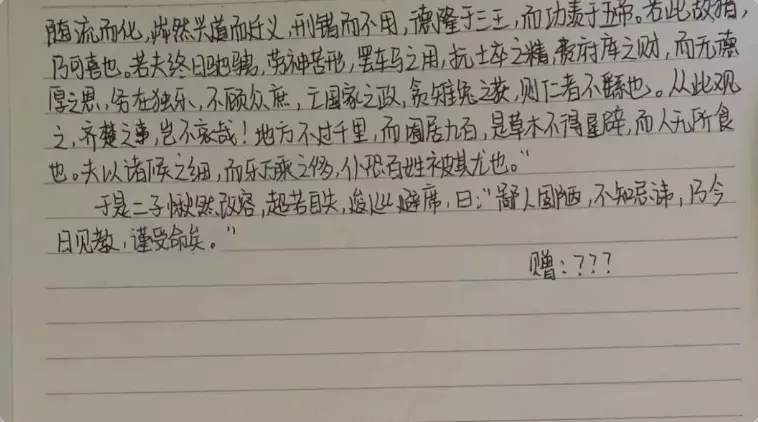 随流而化,然兴道而迁义,刑错而不用,德隆于三王,而功羡于五帝。若此故猎,
乃可喜也。若夫终日驰骋,劳神苦形,罢车马之用,抏士卒之精,费府库之财,而无德
厚之恩,务在独乐,不顾众庶,亡国家之政,贪雉兔之获,则仁者不繇也。从此观
之,齐楚之事,岂不哀哉!地方不过千里,而囿居九百,是草木不得垦辟,而人无所食
也。夫以诸侯之细,而乐万乘之侈,仆恐百姓被其尤也。"
于是二子愀然改容,超若自失,逡巡避席,曰:"鄙人固陋,不知忌讳,乃今
日见教,谨受命矣。"
赠:???